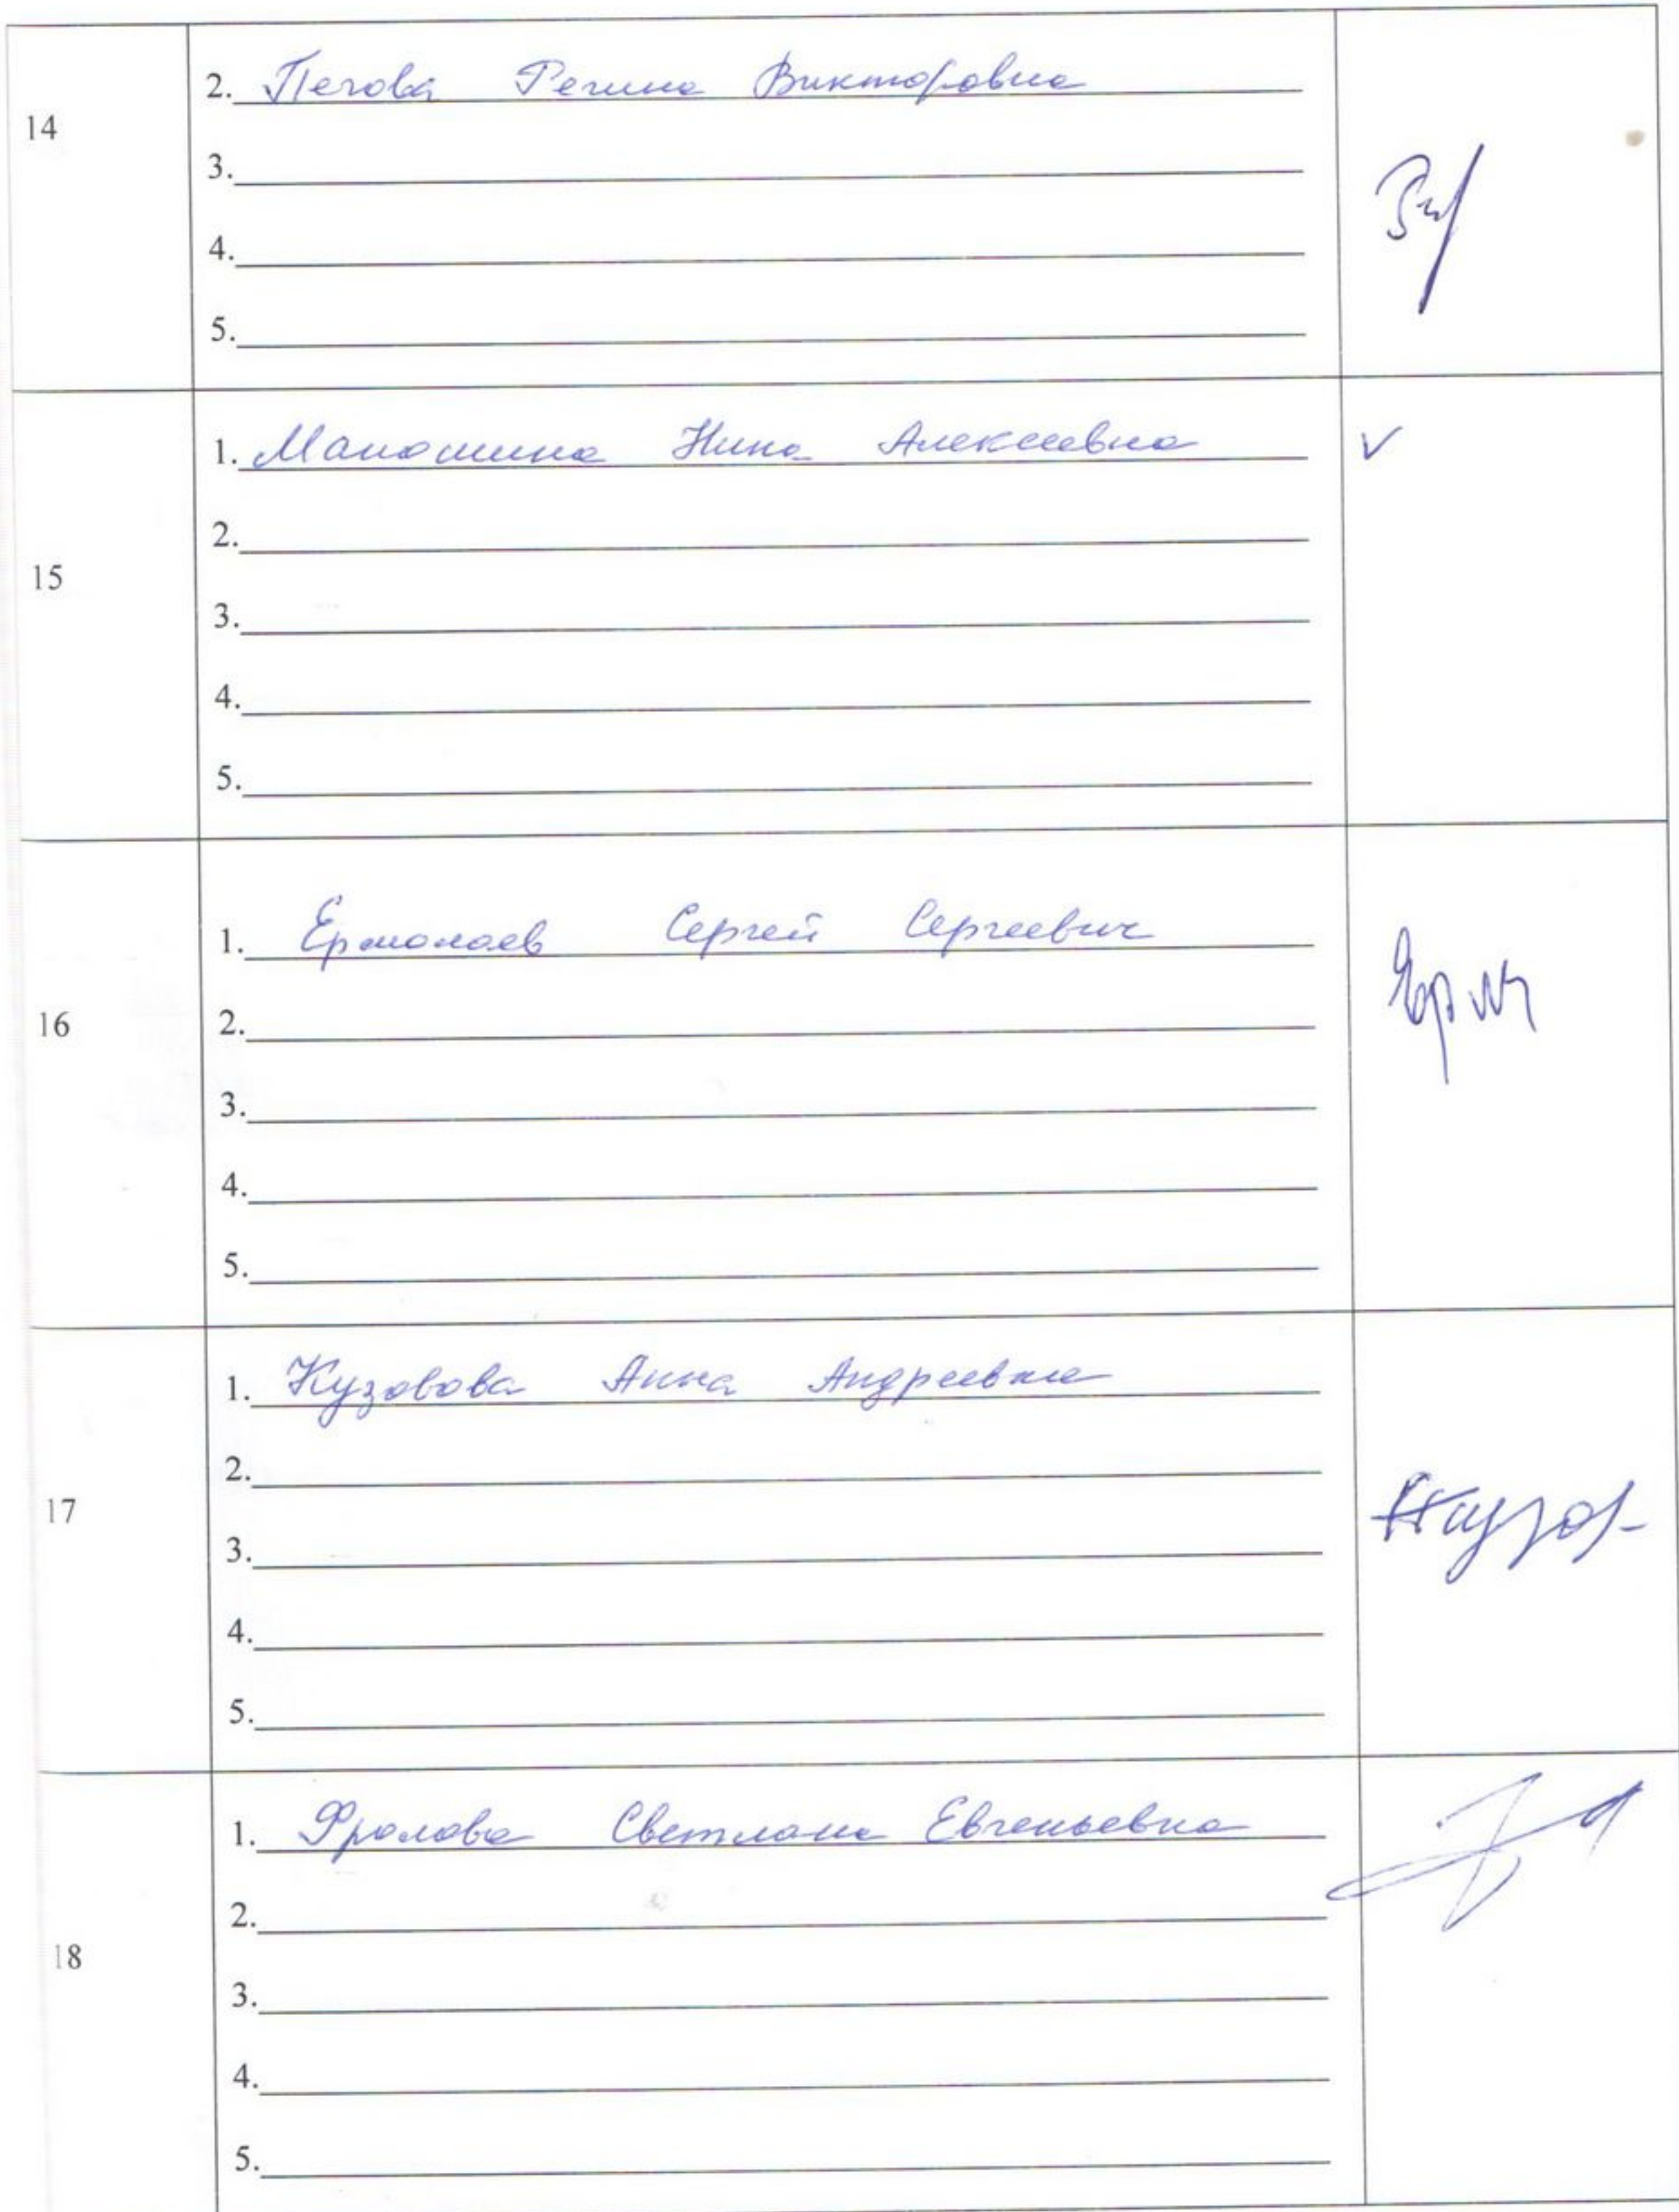 14
2. Пегова Регина Викторовна
3.
4.
5.
15
1. Маношина Нина Алексеевна
2.
3.
4.
5.
16
1. Ермолаев Сергей Сергеевич
2.
3.
4.
5.
17
1. Кузовова Анна Андреевна
2.
3.
4.
5.
18
1. Фролова Светлана Евгеньевна
2.
3.
4.
5.